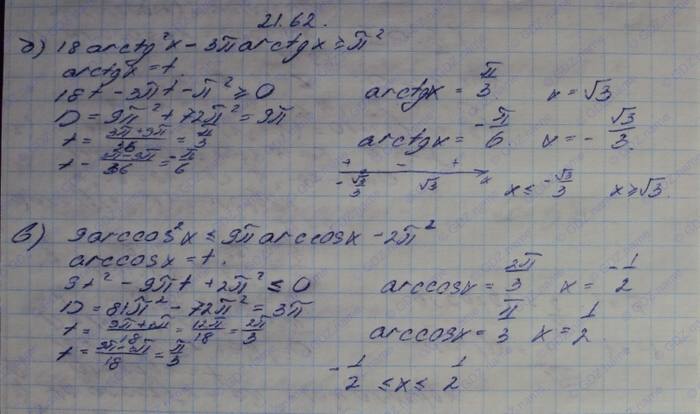 21.62.
б) 18 arctg²x - 3π arctgx ≥ π²
arctgx = t.
18t - 3πt - π² ≥ 0
D = 9π² + 72π² = 9π
t = (3π+9π)/36 = π/3
t = (3π-9π)/36 = -π/6
arctgx = π/3 x = √3
arctgx = -π/6. x = -√3/3.
+ - +
-√3/3 √3 x
x ≤ -√3/3 x ≥ √3.
в) 9 arccos²x ≤ 9π arccosx - 2π²
arccosx = t.
9t² - 9πt + 2π² ≤ 0
D = 81π² - 72π² = 3π
t = (9π+3π)/18 = 12π/18 = 2π/3
t = (9π-3π)/18 = π/3
arccosx = 2π/3 x = -1/2
arccosx = π/3 x = 1/2
-1/2 ≤ x ≤ 1/2